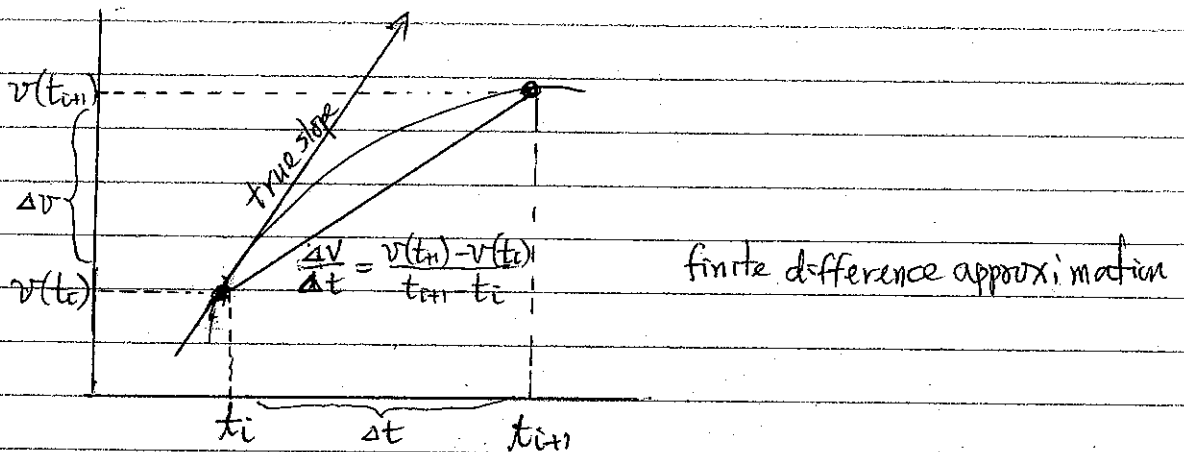 v(t_{i+1})
true slope
Δv
ΔV/Δt = v(t_{i+1}) - v(t_i) / t_{i+1} - t_i
finite difference approximation
v(t_i)
t_i
Δt
t_{i+1}